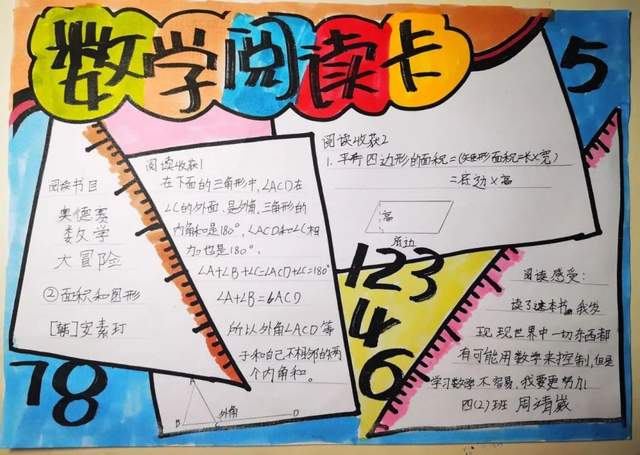 数学阅读卡
阅读书目
奥德赛
数学
大冒险
②面积和图形
[韩]安素玎
阅读收获1
在下面的三角形中,∠ACD在
∠C的外面,是外角,三角形的
内角和是180°,∠ACD和∠C相
加也是180°。
∠A+∠B+∠C=∠ACD+∠C=180°
∠A+∠B=∠ACD
所以外角∠ACD等
于和自己不相邻的两
个内角和。
A
B
C
外角
D
阅读收获2
1.平行四边形的面积=(矩形面积=长×宽)
=底边×高
高
底边
阅读感受:
读了这本书,我发
现,现世界中一切东西都
有可能用数学来控制,但是
学习数学不容易,我要更努力
四(2)班 周靖崴
5
123
4
6
78